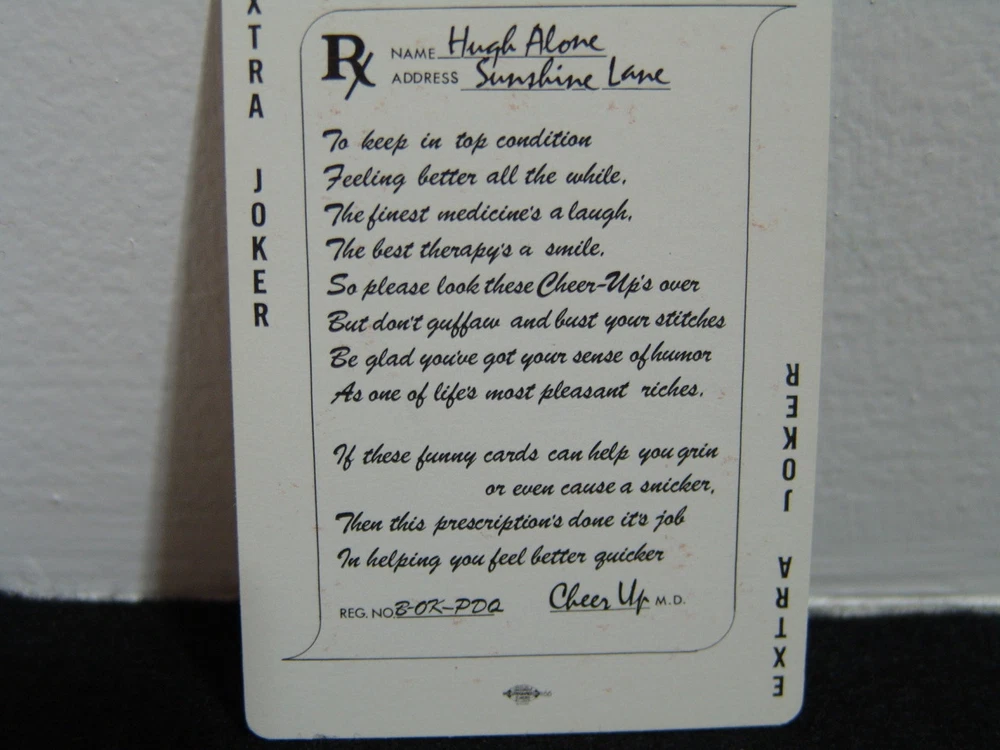 XTRA JOKER
Rx NAME Hugh Alone
ADDRESS Sunshine Lane
To keep in top condition
Feeling better all the while,
The finest medicine's a laugh,
The best therapy's a smile.
So please look these Cheer-Up's over
But don't guffaw and bust your stitches
Be glad you've got your sense of humor
As one of life's most pleasant riches.
If these funny cards can help you grin
or even cause a snicker,
Then this prescription's done it's job
In helping you feel better quicker
REG. NO. B-OK-PDQ Cheer Up M.D.
EXTRA JOKER